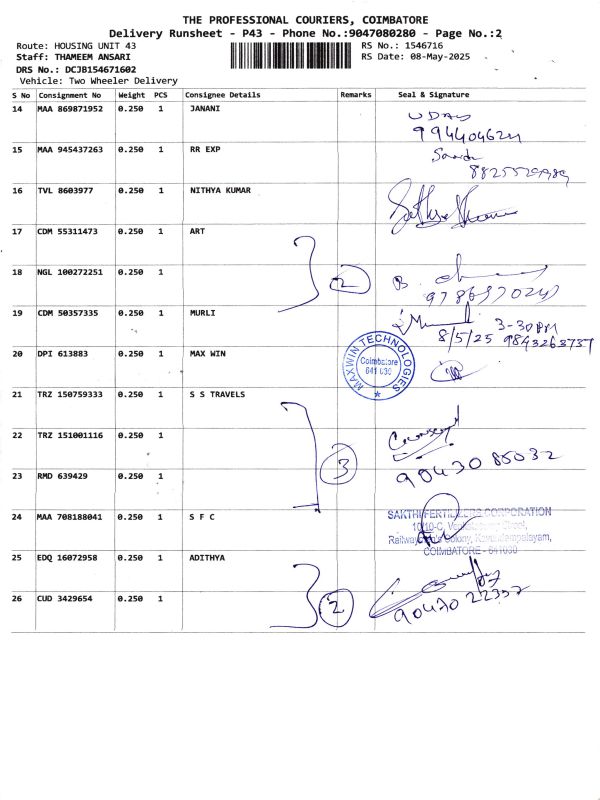 THE PROFESSIONAL COURIERS, COIMBATORE
Delivery Runsheet - P43 - Phone No.:9047080280 - Page No.:2
Route: HOUSING UNIT 43
RS No.: 1546716
Staff: THAMEEM ANSARI
RS Date: 08-May-2025
DRS No.: DCJB154671602
Vehicle: Two Wheeler Delivery
S No Consignment No Weight PCS Consignee Details Remarks Seal & Signature
14 MAA 869871952 0.250 1 JANANI
15 MAA 945437263 0.250 1 RR EXP
16 TVL 8603977 0.250 1 NITHYA KUMAR
17 CDM 55311473 0.250 1 ART
18 NGL 100272251 0.250 1
2
19 CDM 50357335 0.250 1 MURLI
3-30PM
8/5/25
20 DPI 613883 0.250 1 MAX WIN
MAXWIN TECHNOLOGIES
Coimbatore
641 030
21 TRZ 150759333 0.250 1 S S TRAVELS
22 TRZ 151001116 0.250 1
3
90430 85032
23 RMD 639429 0.250 1
24 MAA 708188041 0.250 1 S F C
SAKTHI FERTILIZERS CORPORATION
COIMBATORE - 641030
25 EDQ 16072958 0.250 1 ADITHYA
26 CUD 3429654 0.250 1
2